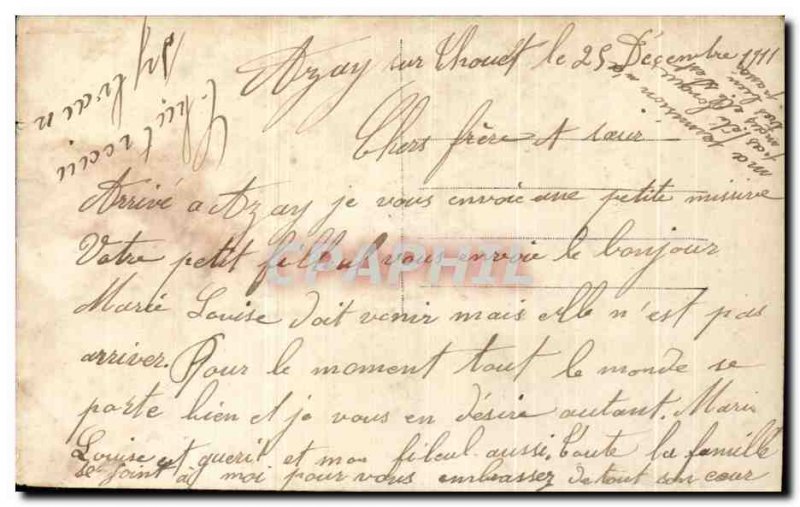 Azay sur Thouet le 25 Décembre 1911
Chers frère et sœur
Arrivé a Azay je vous envoie une petite missive
Votre petit filleul vous envoie le bonjour
Marie Louise doit venir mais elle n'est pas
arriver. Pour le moment tout le monde se
porte bien et je vous en désire autant. Marie
Louise est guerit et mon fileul aussi. Toute la famille
se joint à moi pour vous embrassez de tout son cœur
Sylvain
ma permission n'a
pas été longue
CPAPHIL